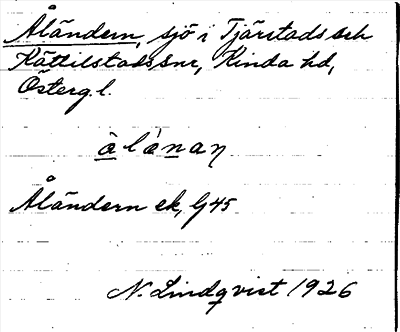 Åländern, sjö i Tjärstads och
Kättilstads snr, Kinda hd,
Österg.l.
å̀lánaꞑ
Åländern ek, G45
N. Lindqvist 1926